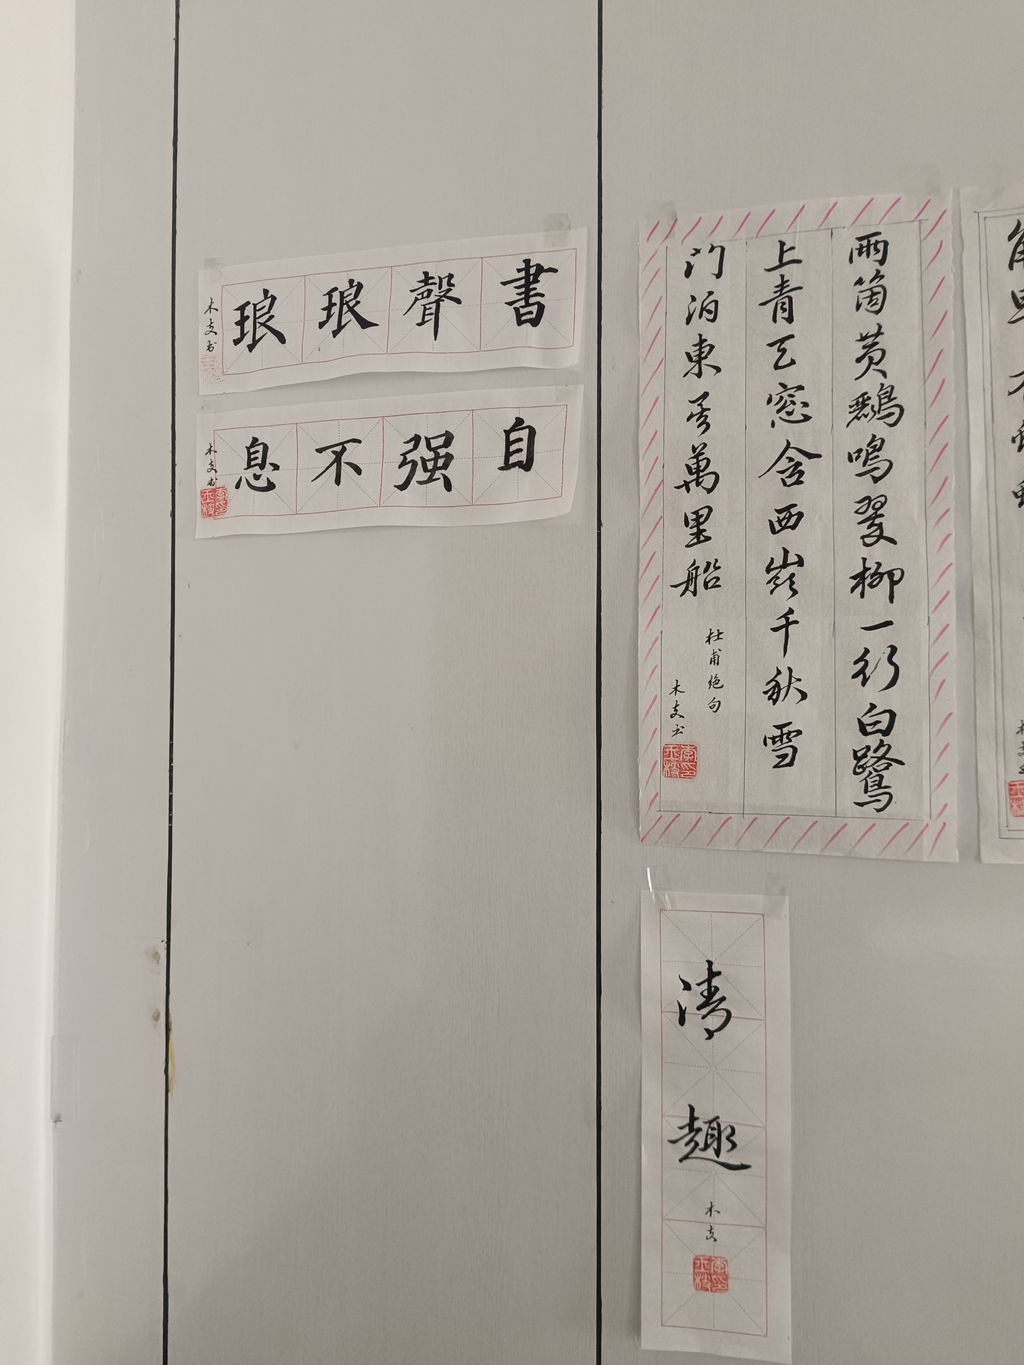 書聲琅琅
木支书
自强不息
木支书
兩箇黄鸝鳴翠柳一行白鷺
上青天窓含西嶺千秋雪
门泊東吴萬里船
杜甫绝句
木支书
清趣
木支